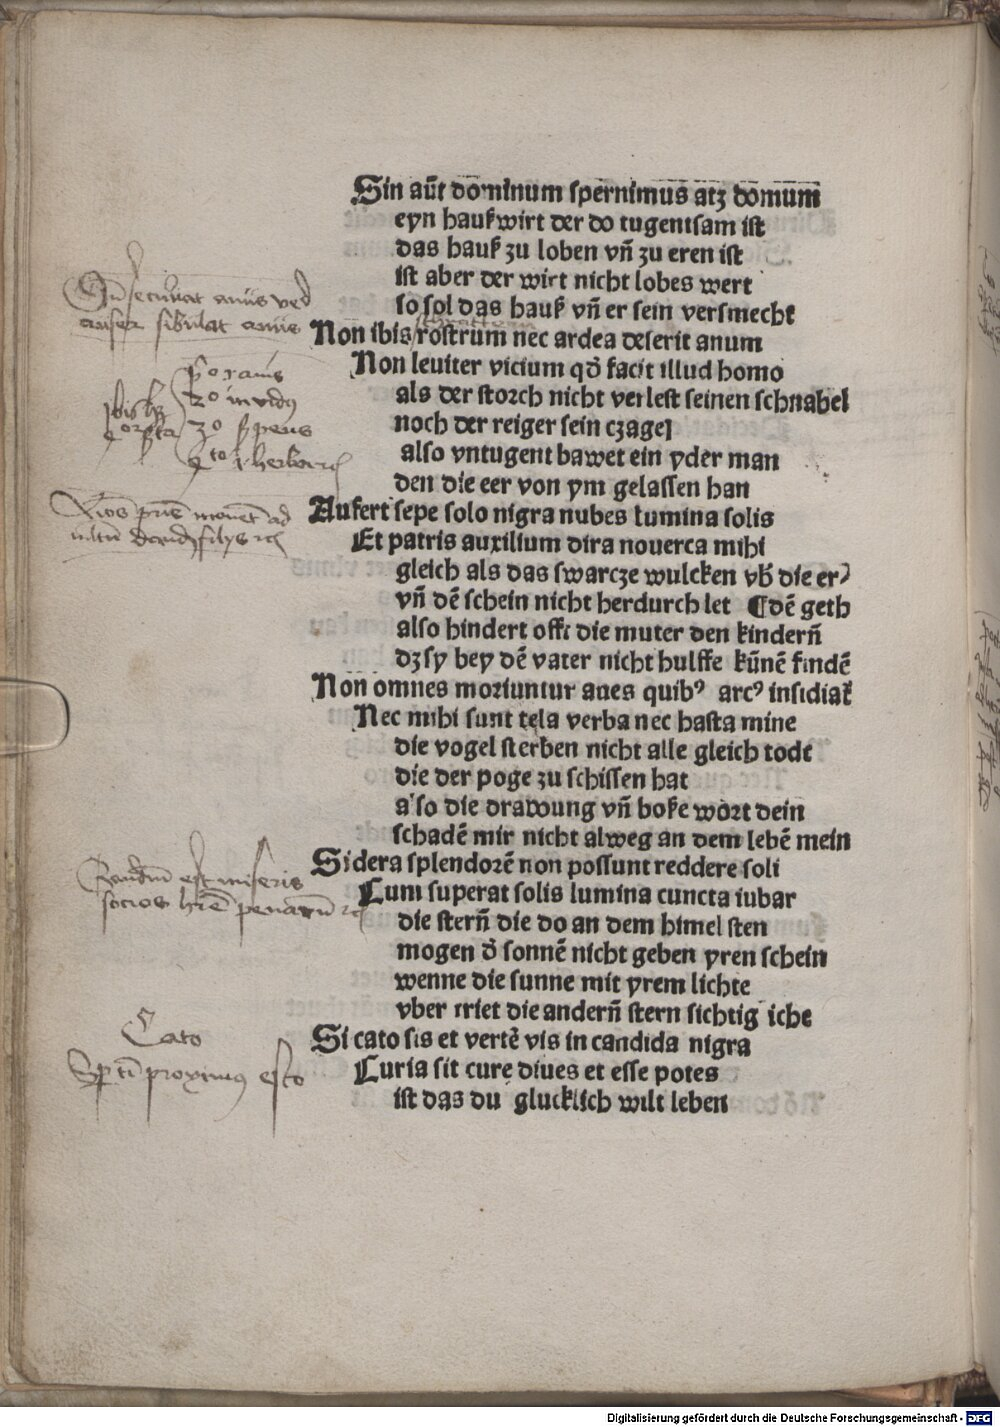 Sin aūt dominum spernimus atꝫ domum
eyn hauß wirt der do tugentsam ist
das hauß zu loben vn̄ zu eren ist
ist aber der wirt nicht lobes wert
so sol das hauß vn̄ er sein versmecht
Non ibis rostrum nec ardea deserit anum
Non leuiter vicium qd̄ facit illud homo
als der storch nicht verlest seinen schnabel
noch der reiger sein czagel
also vntugent bawet ein yder man
den die eer von ym gelassen han
Aufert sepe solo nigra nubes lumina solis
Et patris auxilium dira nouerca mihi
gleich als das swarcze wulcken vb̄ die er
vn̄ dē schein nicht herdurch let ¶ dē geth
also hindert offt die muter den kindern̄
dꝫ sy bey dē vater nicht hulffe kūnē findē
Non omnes moriuntur aues quibꝰ arcꝰ insidiat᷑
Nec mihi sunt tela verba nec hasta mine
die vogel sterben nicht alle gleich todt
die der poge zu schissen hat
also die drawung vn̄ boße wort dein
schadē mir nicht alweg an dem lebē mein
Sidera splendorē non possunt reddere soli
Cum superat solis lumina cuncta iubar
die stern̄ die do an dem himel sten
mogen d̄ sonnē nicht geben yren schein
wenne die sunne mit yrem lichte
vber triet die andern̄ stern sichtigliche
Si cato sis et vertē vis in candida nigra
Curia sit cure diues et esse potes
ist das du glucklich wilt leben
Cato
proximus esto
Digitalisierung gefördert durch die Deutsche Forschungsgemeinschaft - DFG